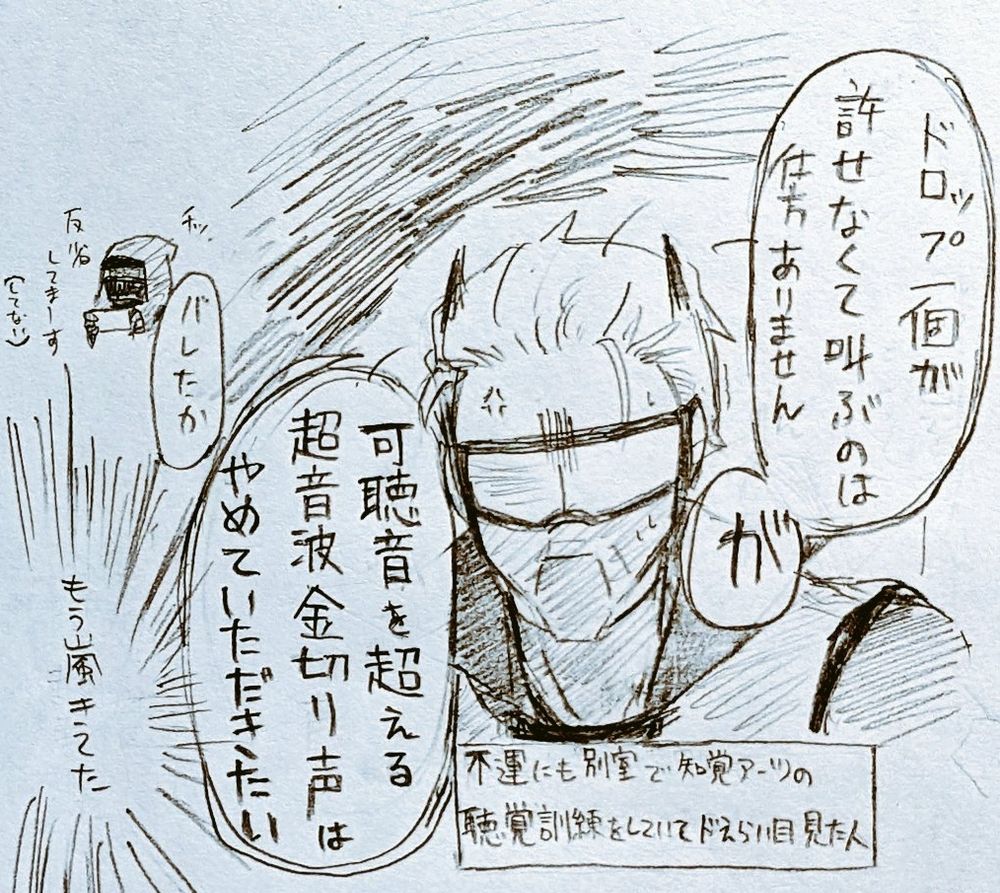 ドロップ一個が
許せなくて叫ぶのは
仕方ありません
が
可聴音を超える
超音波金切り声は
やめていただきたい
バレたか
チッ
反省
してきまーす
(してない)
もう嵐きてた
不運にも別室で知覚アーツの
聴覚訓練をしていてドえらい目見た人